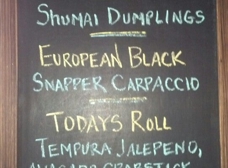 SHUMAI DUMPLINGS
EUROPEAN BLACK
SNAPPER CARPACCIO
TODAYS ROLL
TEMPURA JALEPENO,
AVOCADO CRABSTICK